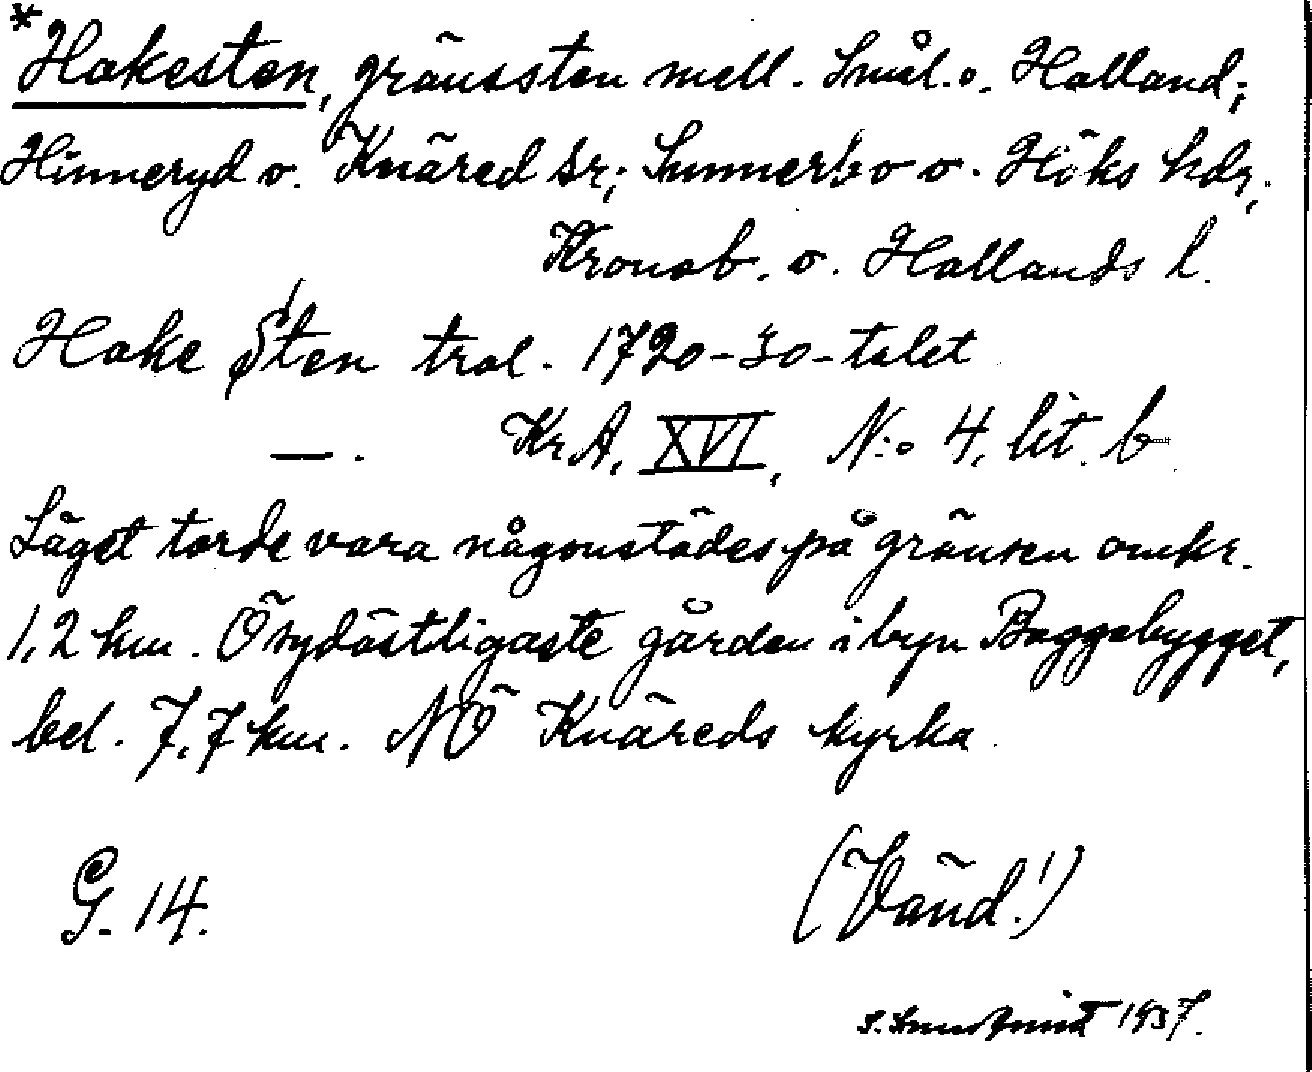 *Hakesten, gränssten mell. Smål. o. Halland;
Hinneryd o. Knäred sr; Sunnerbo o. Höks hdr,
Kronob. o. Hallands l.
Hake Sten trol. 1720-30-talet
—. KrA, XVI, N:o 4, lit. b
Läget torde vara någonstädes på gränsen omkr.
1,2 km. Ö sydöstligaste gården i byn Baggabygget,
bel. 7,7 km. NÖ Knäreds kyrka.
G. 14. (Vänd!)
S. 1937.